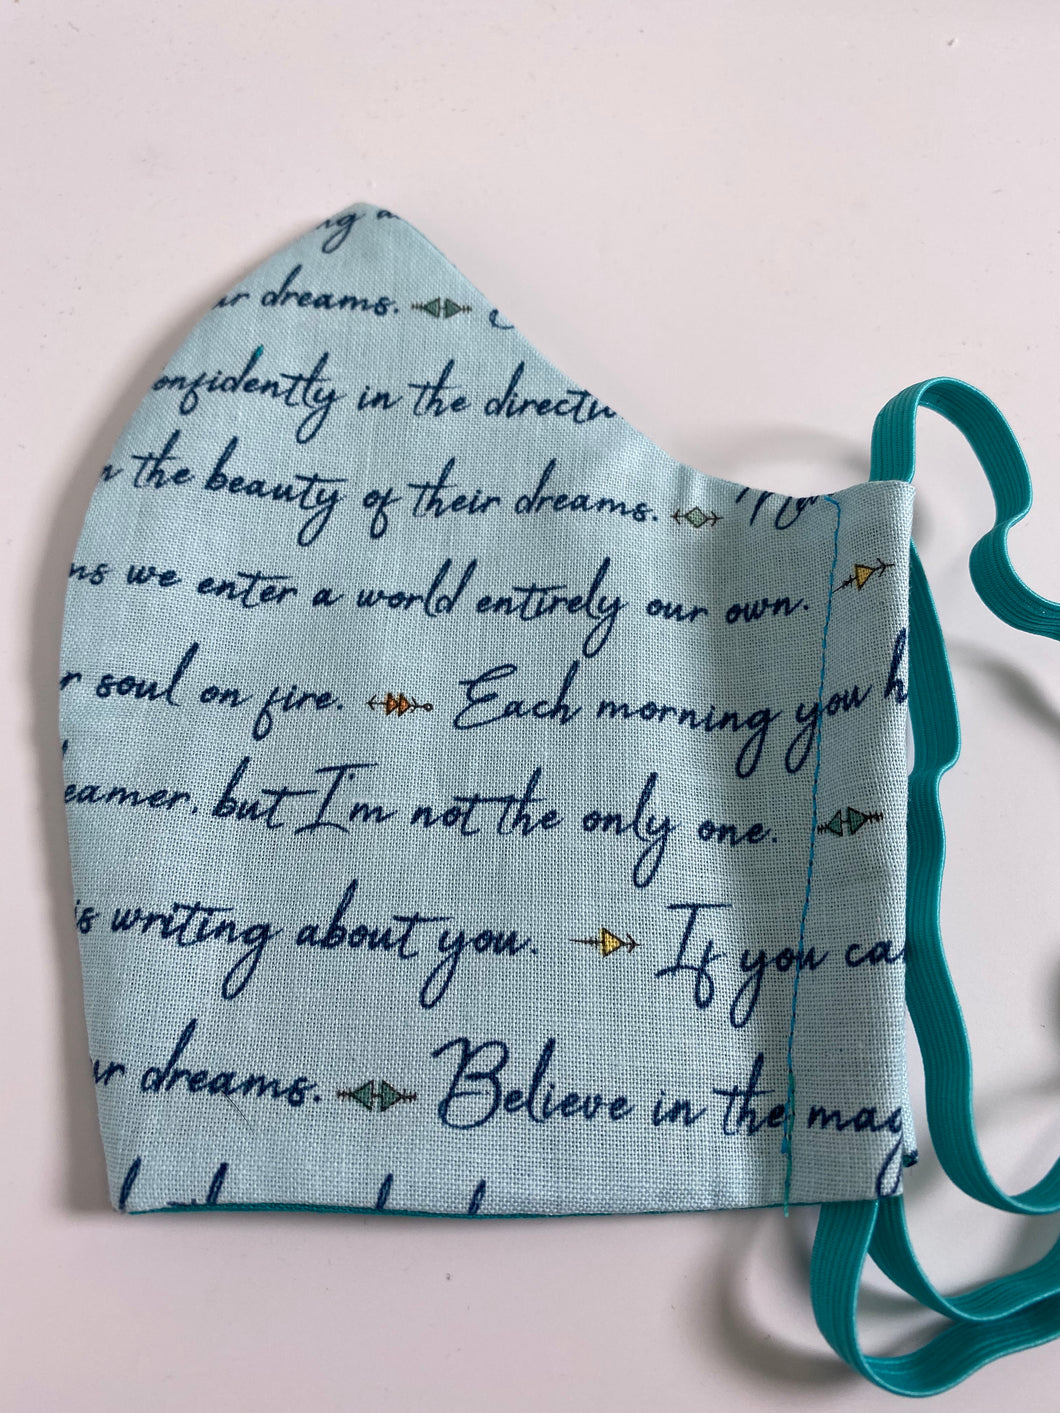 dreams.
in the
the beauty of their dreams.
we enter a world entirely our own.
soul on fire. Each morning you
but I'm not the only one.
is writing about you. If you
dreams. Believe in the